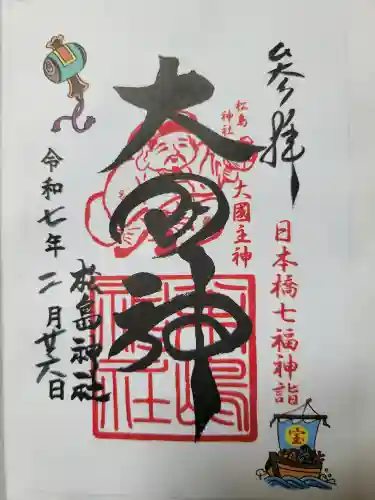 参拝
日本橋七福神詣
松島
神社
大國主神
大国神
松島神社
令和七年二月廿六日
松島神社
宝